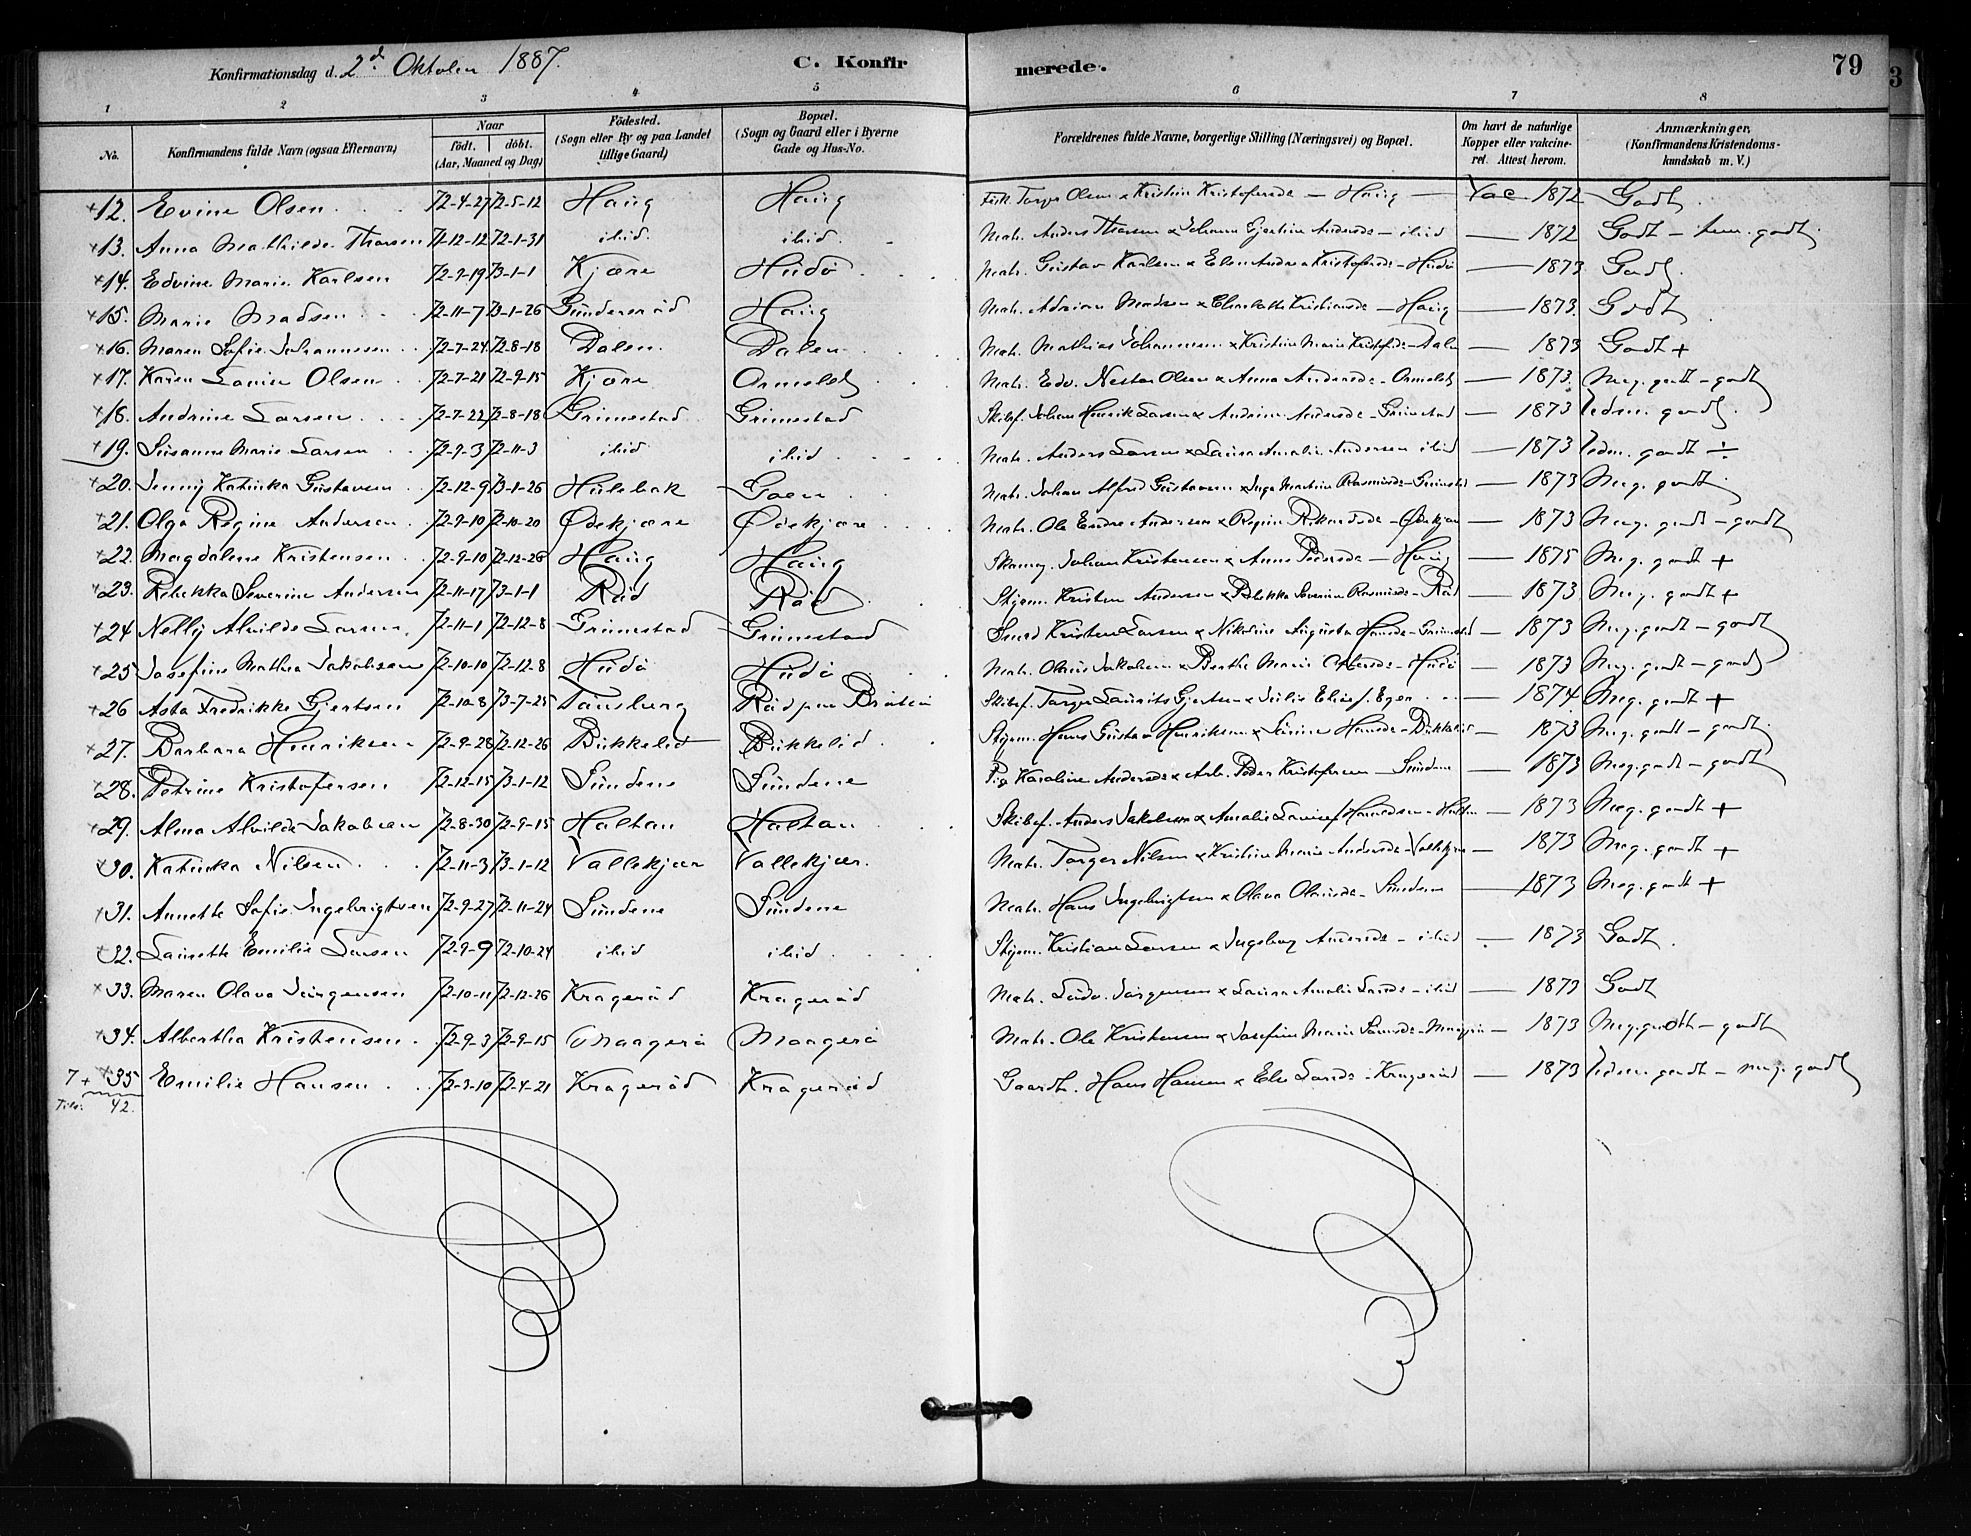 Konfirmationsdag d. 2d Oktober 1887. C. Konfirmerede. 79
1 2 3 4 5 6 7 8
No. Konfirmandens fulde Navn (ogsaa Efternavn) Naar födt. döbt. (Aar, Maaned og Dag) Födested. (Sogn eller By og paa Landet tillige Gaard) Bopæl. (Sogn og Gaard eller i Byerne Gade og Hus-No. Forældrenes fulde Navne, borgerlige Stilling (Næringsvei) og Bopæl. Om havt de naturlige Kopper eller vaccineret. Attest herom. Anmærkninger. (Konfirmandens Kristendomskundskab m. V.)
12. Evine Olsen 72-4-27 72-5-12 Haug Haug Torger Olsen & Kristine Kristofersd. — Haug — Vac 1872 Godt.
13. Anna Mathilde Thorsen 71-12-12 72-1-31 ibid. ibid. Matr. Anders Thorsen & Johanne Gjertine Andersd. — ibid — 1872 Godt — tem. godt
14. Edvine Marie Karlsen 72-9-19 73-1-1 Kjære Hudö Matr. Gustav Karlsen & Elen Andrea Kristofersd. — Hudö — 1873 Godt.
15. Marie Madsen 72-11-7 73-1-26 Gunderöd Haug Matr. Adrian Madsen & Elisabeth Kristiansd. — Haug — 1873. Godt
16. Maren Sofie Johannesen 72-7-24 72-8-18 Dalen Dalen Matr. Mathias Johannesen & Kristine Marie Kristofersd. — Dalen 1873 Godt +
17. Karen Lovise Olsen 72-7-21 72-9-15 Kjære Ormelet Matr. Edv. Nestor Olsen & Anna Andersd. — Ormelet — 1873. Meg. godt — godt
18. Andrine Larsen 72-7-22 72-8-18 Grimestad Grimestad Skibsf. Johan Henrik Larsen & Andrine Andersd. — Grimestad — 1873 Udm. godt.
19. Susanne Marie Larsen 72-9-3 72-11-3 ibid ibid Matr. Anders Larsen & Laura Amalie Andersen ibid — 1873 Udm. godt ÷
20. Jenny Katinka Gustavsen 72-12-9 73-1-26 Hulebak Goen Matr. Johan Alfred Gustavsen & Inga Martine Rasmusd. — Grimestad — 1873 Meg. godt
21. Olga Regine Andersen 72-9-10 72-10-20 Ødekjære Ødekjære Matr. Ole Andersen & Regine — Ødekjær — 1873 Meg. godt — godt
22. Magdalene Kristensen 72-9-10 72-12-26 Haug Haug Johan Kristensen & Anne Pedersd. — Haug — 1875 Meg. godt +
23. Rebekka Severine Andersen 72-11-17 73-1-1 Röd Röd Stjrm. Kristen Andersen & Rebekka Severine Rasmusd. — Röd — 1873 Meg. godt +
24 Nelly Alvilde Larsen 72-11-1 72-12-8 Grimestad Grimestad Smed Kristen Larsen & Nikoline Augusta Hansd. — Grimestad — 1873 Meg. godt — godt
25 Josefine Mathea Jakobsen 72-10-10 72-12-8 Hudö Hudö Matr. Olaus Jakobsen & Berthe Marie — Hudö — 1873 Meg. godt — godt
26 Asta Fredrikke Gjertsen 72-10-8 73-7-25 Tönsberg Röd Skibsf. Torger Laurits Gjertsen & Julie Elise f. Eger — 1874 Meg. godt +
27. Barbara Henriksen 72-9-28 72-12-26 Bukkelid Bukkelid Stjrm. Hans Gustav Henriksen & Hansd. — Bukkelid — 1873 Meg. godt — godt
28. Petrine Kristofersen 72-12-15 73-1-12 Sundene Sundene Pig. Karoline Andersd. & Arb. Peder Kristofersen — Sundene — 1873 Meg. godt — godt
29. Alma Alvilde Jakobsen 72-8-30 72-9-15 Holtan Holtan Skibsf. Anders Jakobsen & Amalie Lovise — 1873 Meg. godt +
30. Katinka Nilsen 72-11-3 73-1-12 Vallekjær Vallekjær. Matr. Torger Nilsen & Kristine Marie Andersd. — Vallekjær — 1873 Meg. godt +
31. Annette Sofie Ingebrigtsen 72-9-27 72-11-24 Sundene Sundene Matr. Hans Ingebrigtsen & Olava — Sundene — 1873 Meg. godt +
32. Laurette Emilie Larsen 72-9-9 72-10-24 ibid ibid Stjrm. Kristian Larsen & Ingeborg Andersd. — ibid — 1873 Godt.
33. Maren Olava Jörgensen 72-10-11 72-12-26 Krageröd Krageröd Matr. Ludv. Jörgensen & Laura Amalie Larsd. — ibid — 1873 Godt
34. Alberthea Kristensen 72-9-3 72-9-15 Maagerö Maagerö Matr. Ole Kristensen & Josefine Marie — Maagerö — 1873 Meg. godt — godt
7 + 35 Emilie Hansen 72-3-10 72-4-21 Krageröd Krageröd Gaardb. Hans Hansen & Else Larsd. — Krageröd — 1873 Udm. godt — meg. godt
Tils: 42.
3